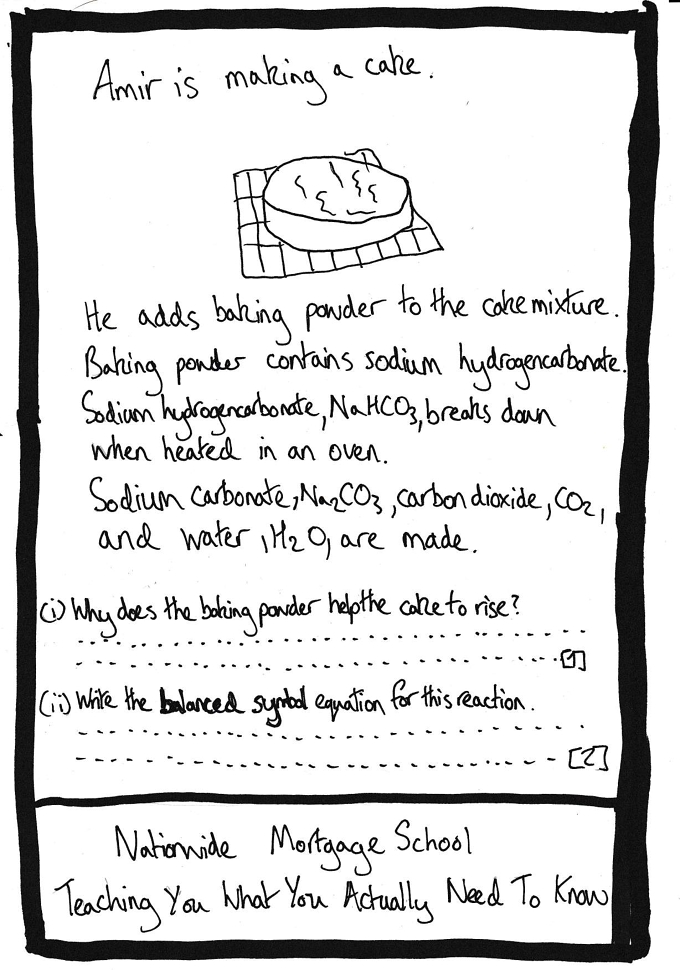 Amir is making a cake.
He adds baking powder to the cake mixture.
Baking powder contains sodium hydrogencarbonate.
Sodium hydrogencarbonate, NaHCO3, breaks down
when heated in an oven.
Sodium carbonate, Na2CO3, carbon dioxide, CO2,
and water, H2O, are made.
(i) Why does the baking powder help the cake to rise?
[1]
(ii) Write the balanced symbol equation for this reaction.
[2]
Nationwide Mortgage School
Teaching You What You Actually Need To Know